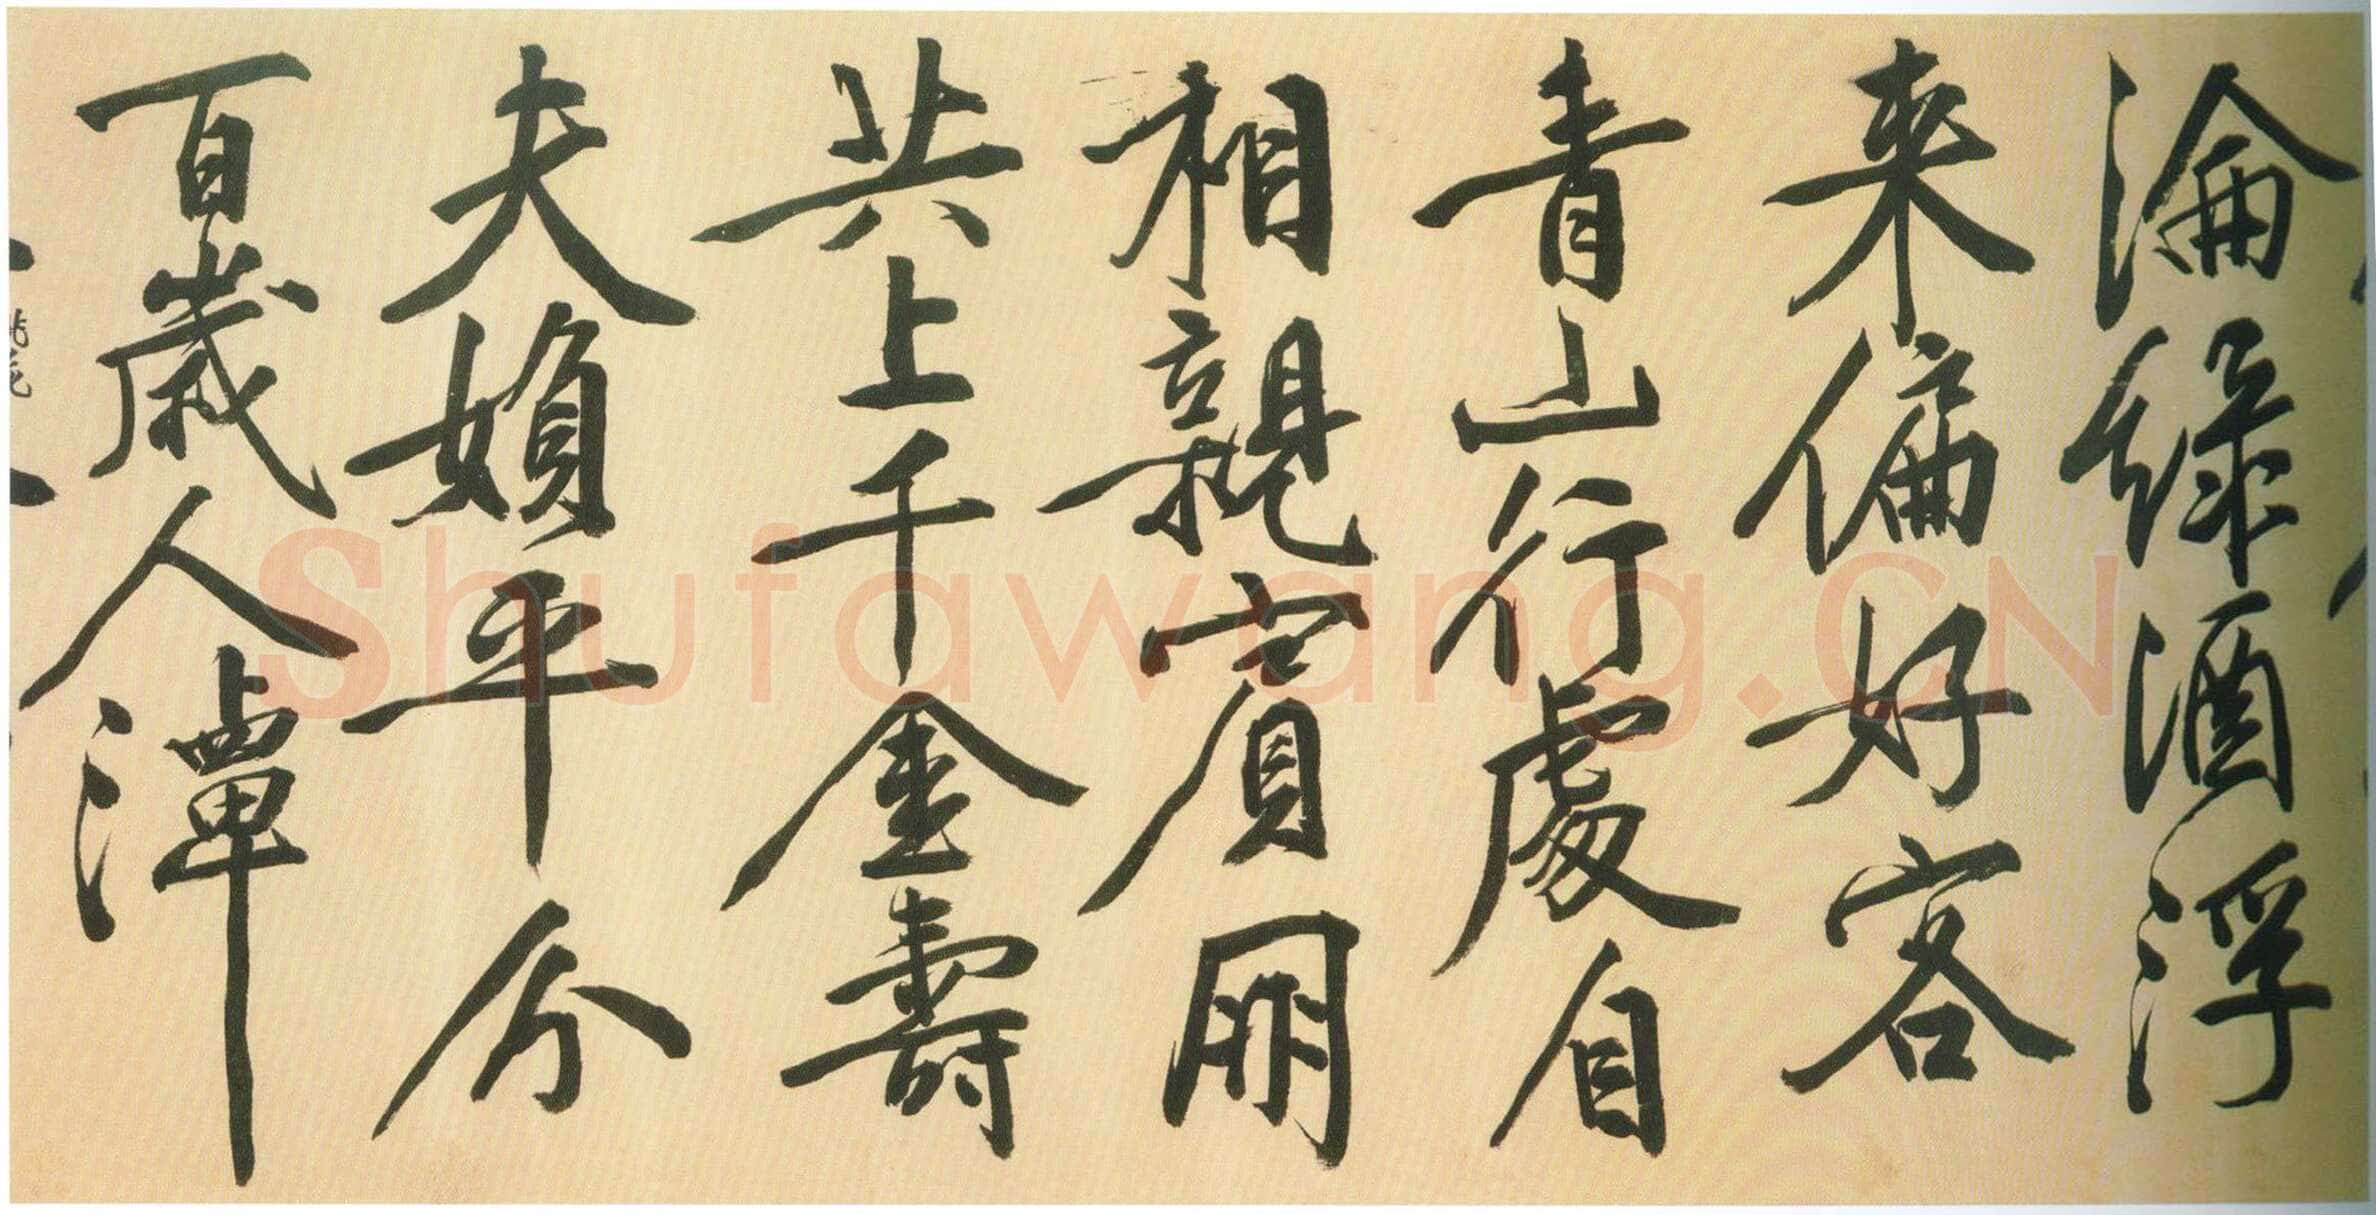 淪綠酒浮
來偏好客
青山行處自
相親賓朋
共上千金壽
夫媍平分
百歲人潭
Shufawang.CN